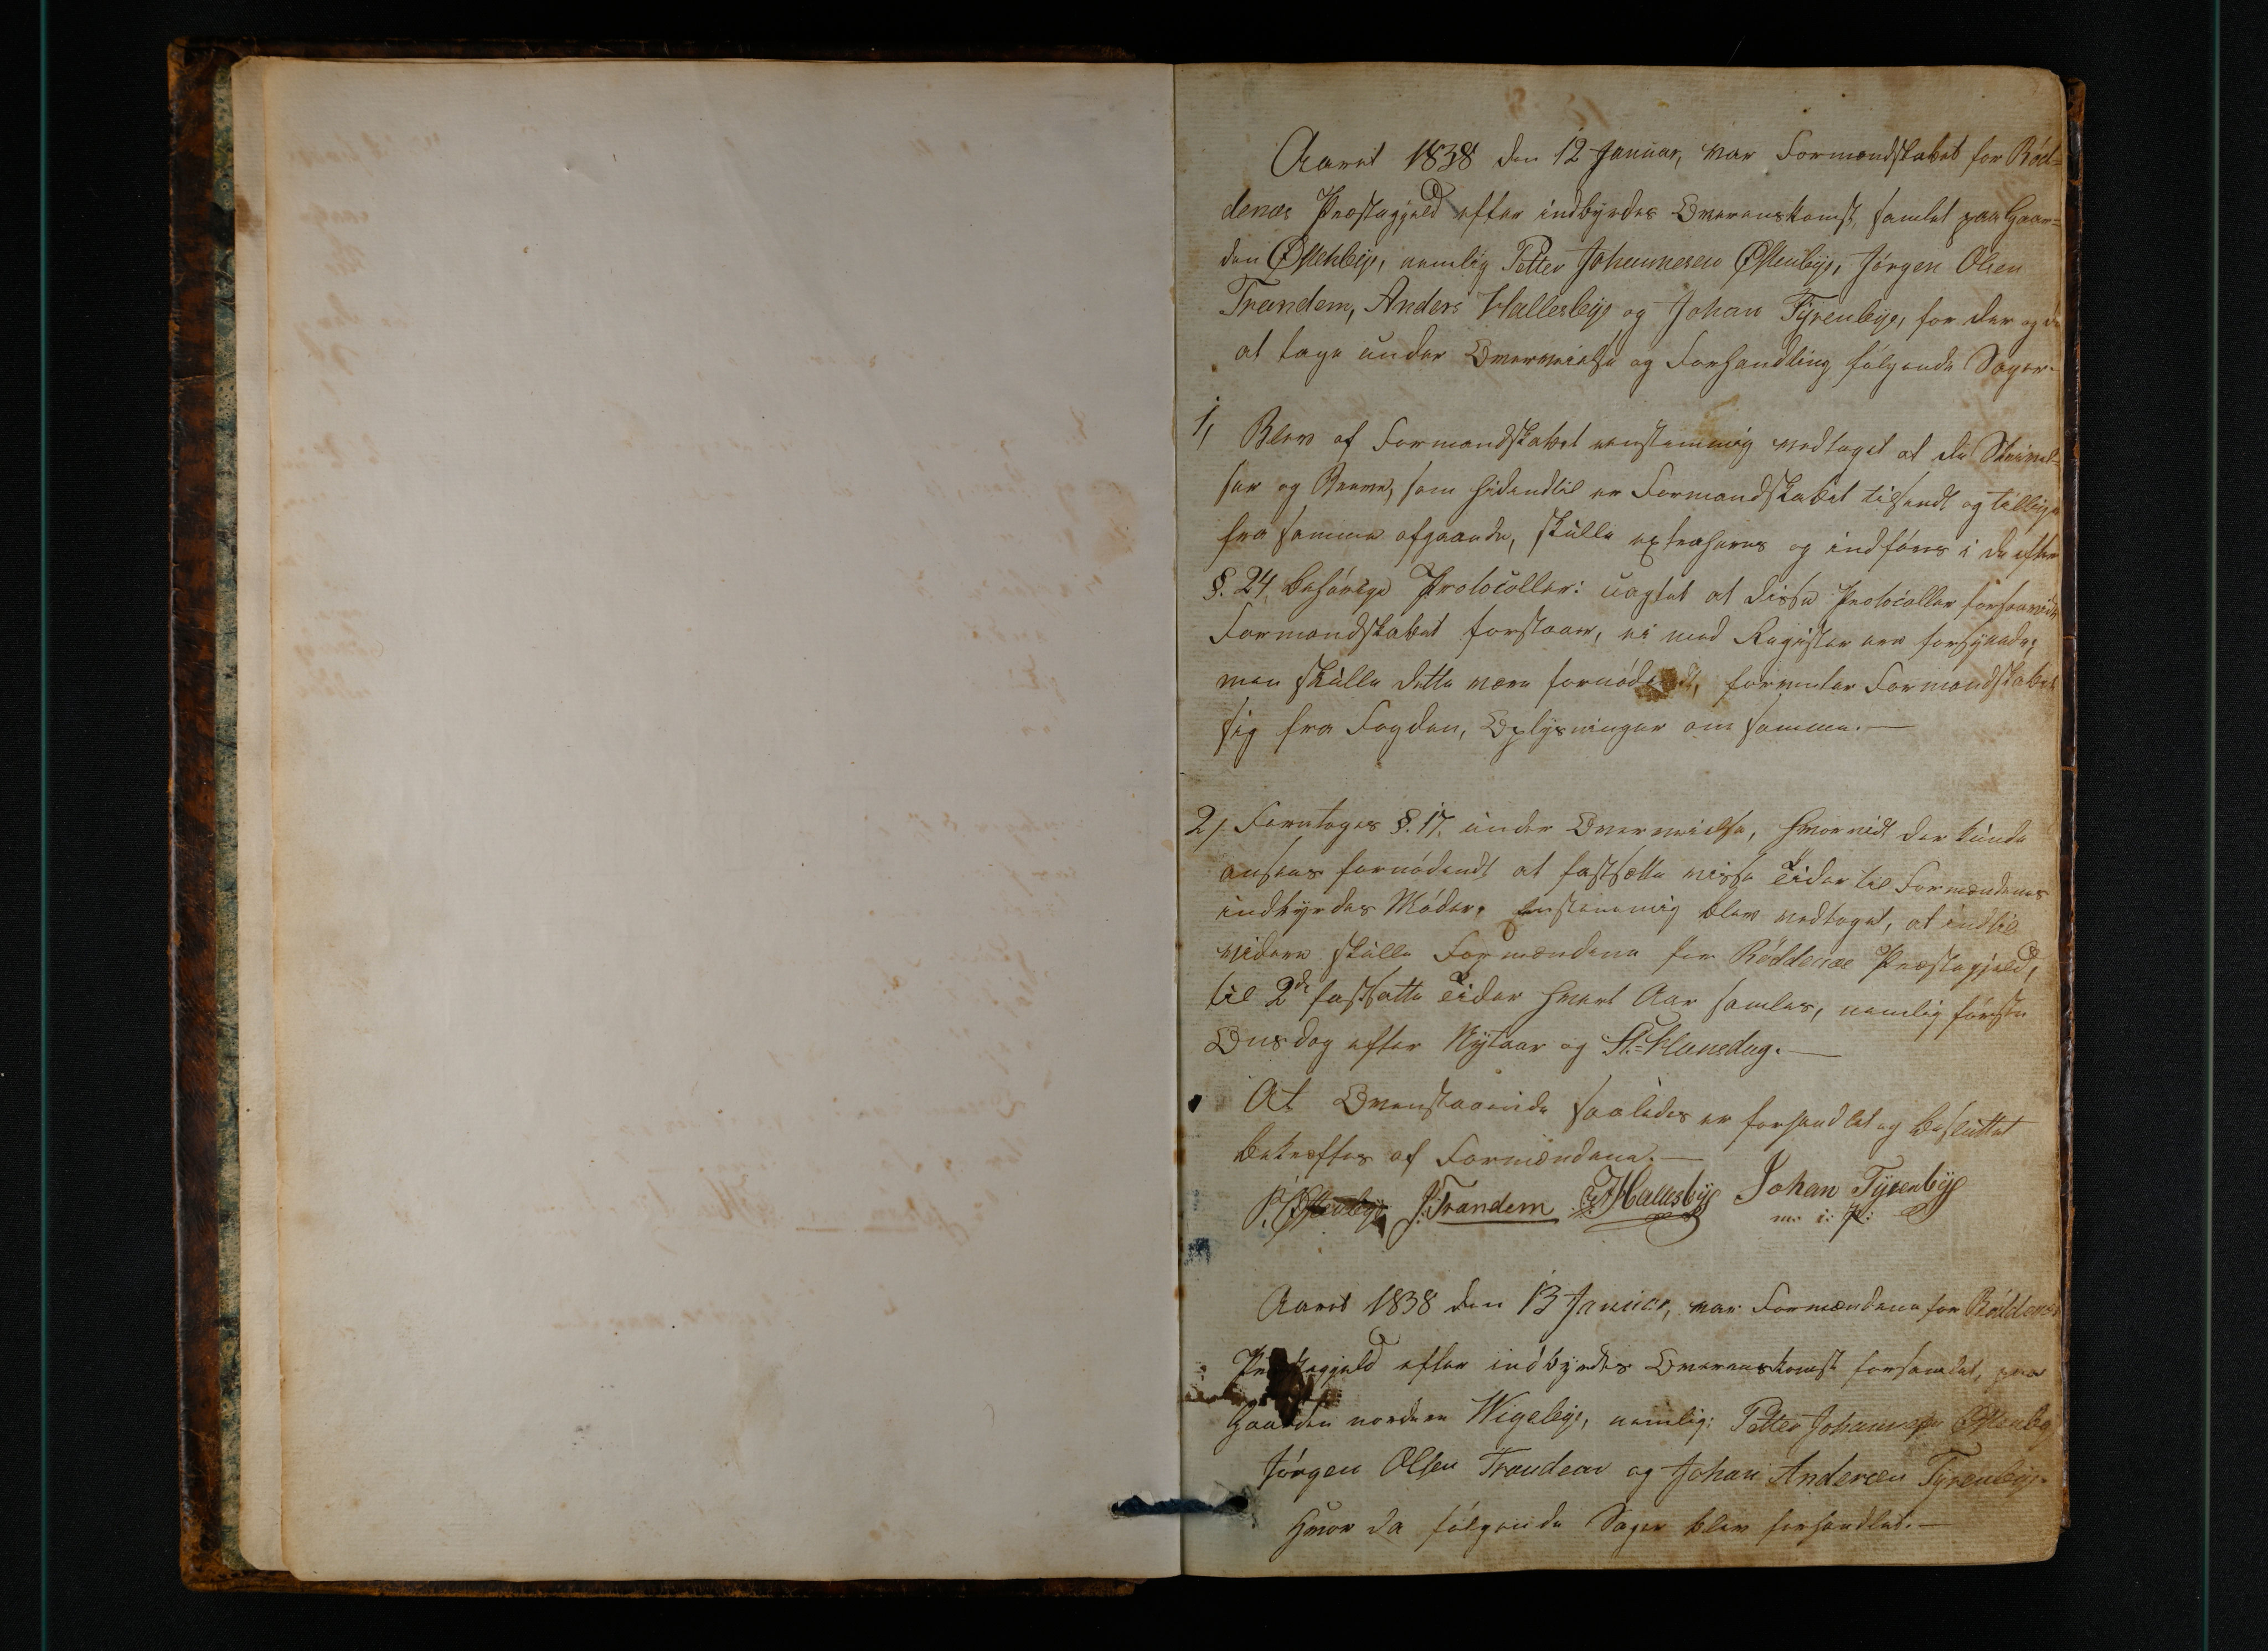 Aaret 1838 den 12 Januar, var Formandskabet for Rød=
denæs Præstegjeld efter indbyrdes Overenskomst, samlet paa Gaar=
den Østenbye, nemlig Petter Johannesen Østenbye, Jørgen Olsen
Trandem, Anders Hallesbye og Johan Tyrenbye, for der og da
at tage under Overveielse og Forhandling følgende Sager.
1, Blev af Formandskabet eenstemmig vedtaget at de Skrivel=
ser og Breve, som hidendtil er Formandskabet tilsendt og tillige
fra samme afgaaede, skulle extraheres og indføres i de efter
§. 24 behørige Protocoller: uagtet at disse Protocoller forsaavidt
Formandskabet forstaaer, ei med Register ere forsynede;
men skulle dette være fornødendt, formoder Formandskabet
sig fra Fogden, Oplysninger om samme.—
2, Foretoges §. 17, under Overveielse, hvorvidt der kunde
ansees fornødendt at fastsætte visse Tider til Formændenes
indbyrdes Møder. Eenstemmig blev vedtaget, at indtil
videre skulle Formændene for Røddenæs Præstegjeld,
til 2de fastsatte Tider hvert Aar samles, nemlig første
Onsdag efter Nytaar og St.=Hansdag.—
At Ovenstaaende saaledes er forhandlet og besluttet
bekræftes af Formændene.—
P. Østenbye J. Trandem A Hallesbye Johan Tyrenbye
m: i: P:
Aaret 1838 den 13 Januar, var Formændene for Røddenæs
Præstegjeld efter indbyrdes Overenskomst forsamlet, paa
Gaarden nordre Wigebye, nemlig: Petter Johannesen Østenby
Jørgen Olsen Trandem og Johan Andersen Tyrenbye.
Hvor da følgende Sager blev forhandlet.—